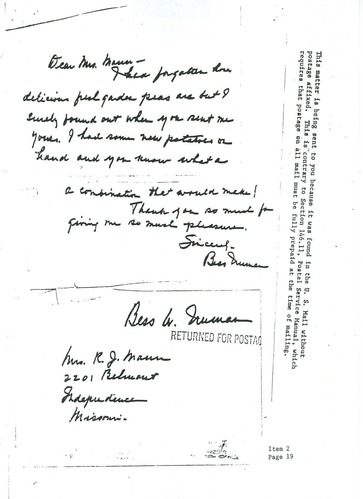 Dear Mrs. Mann -
I had forgotten how
delicious fresh garden peas are but I
surely found out when you sent me
yours. I had some new potatoes on
hand and you know what a
a combination that would make!
Thank you so much for
giving me so much pleasure.
Sincerely -
Bess Truman
Bess W. Truman
RETURNED FOR POSTAG
Mrs. R. J. Mann
2201 Belmont
Independence
Missouri.
This matter is being sent to you because it was found in the U. S. Mail without
postage affixed. This is contrary to Section 146.11, Postal Service Manual, which
requires that postage on all mail must be fully prepaid at the time of mailing.
Item 2
Page 19